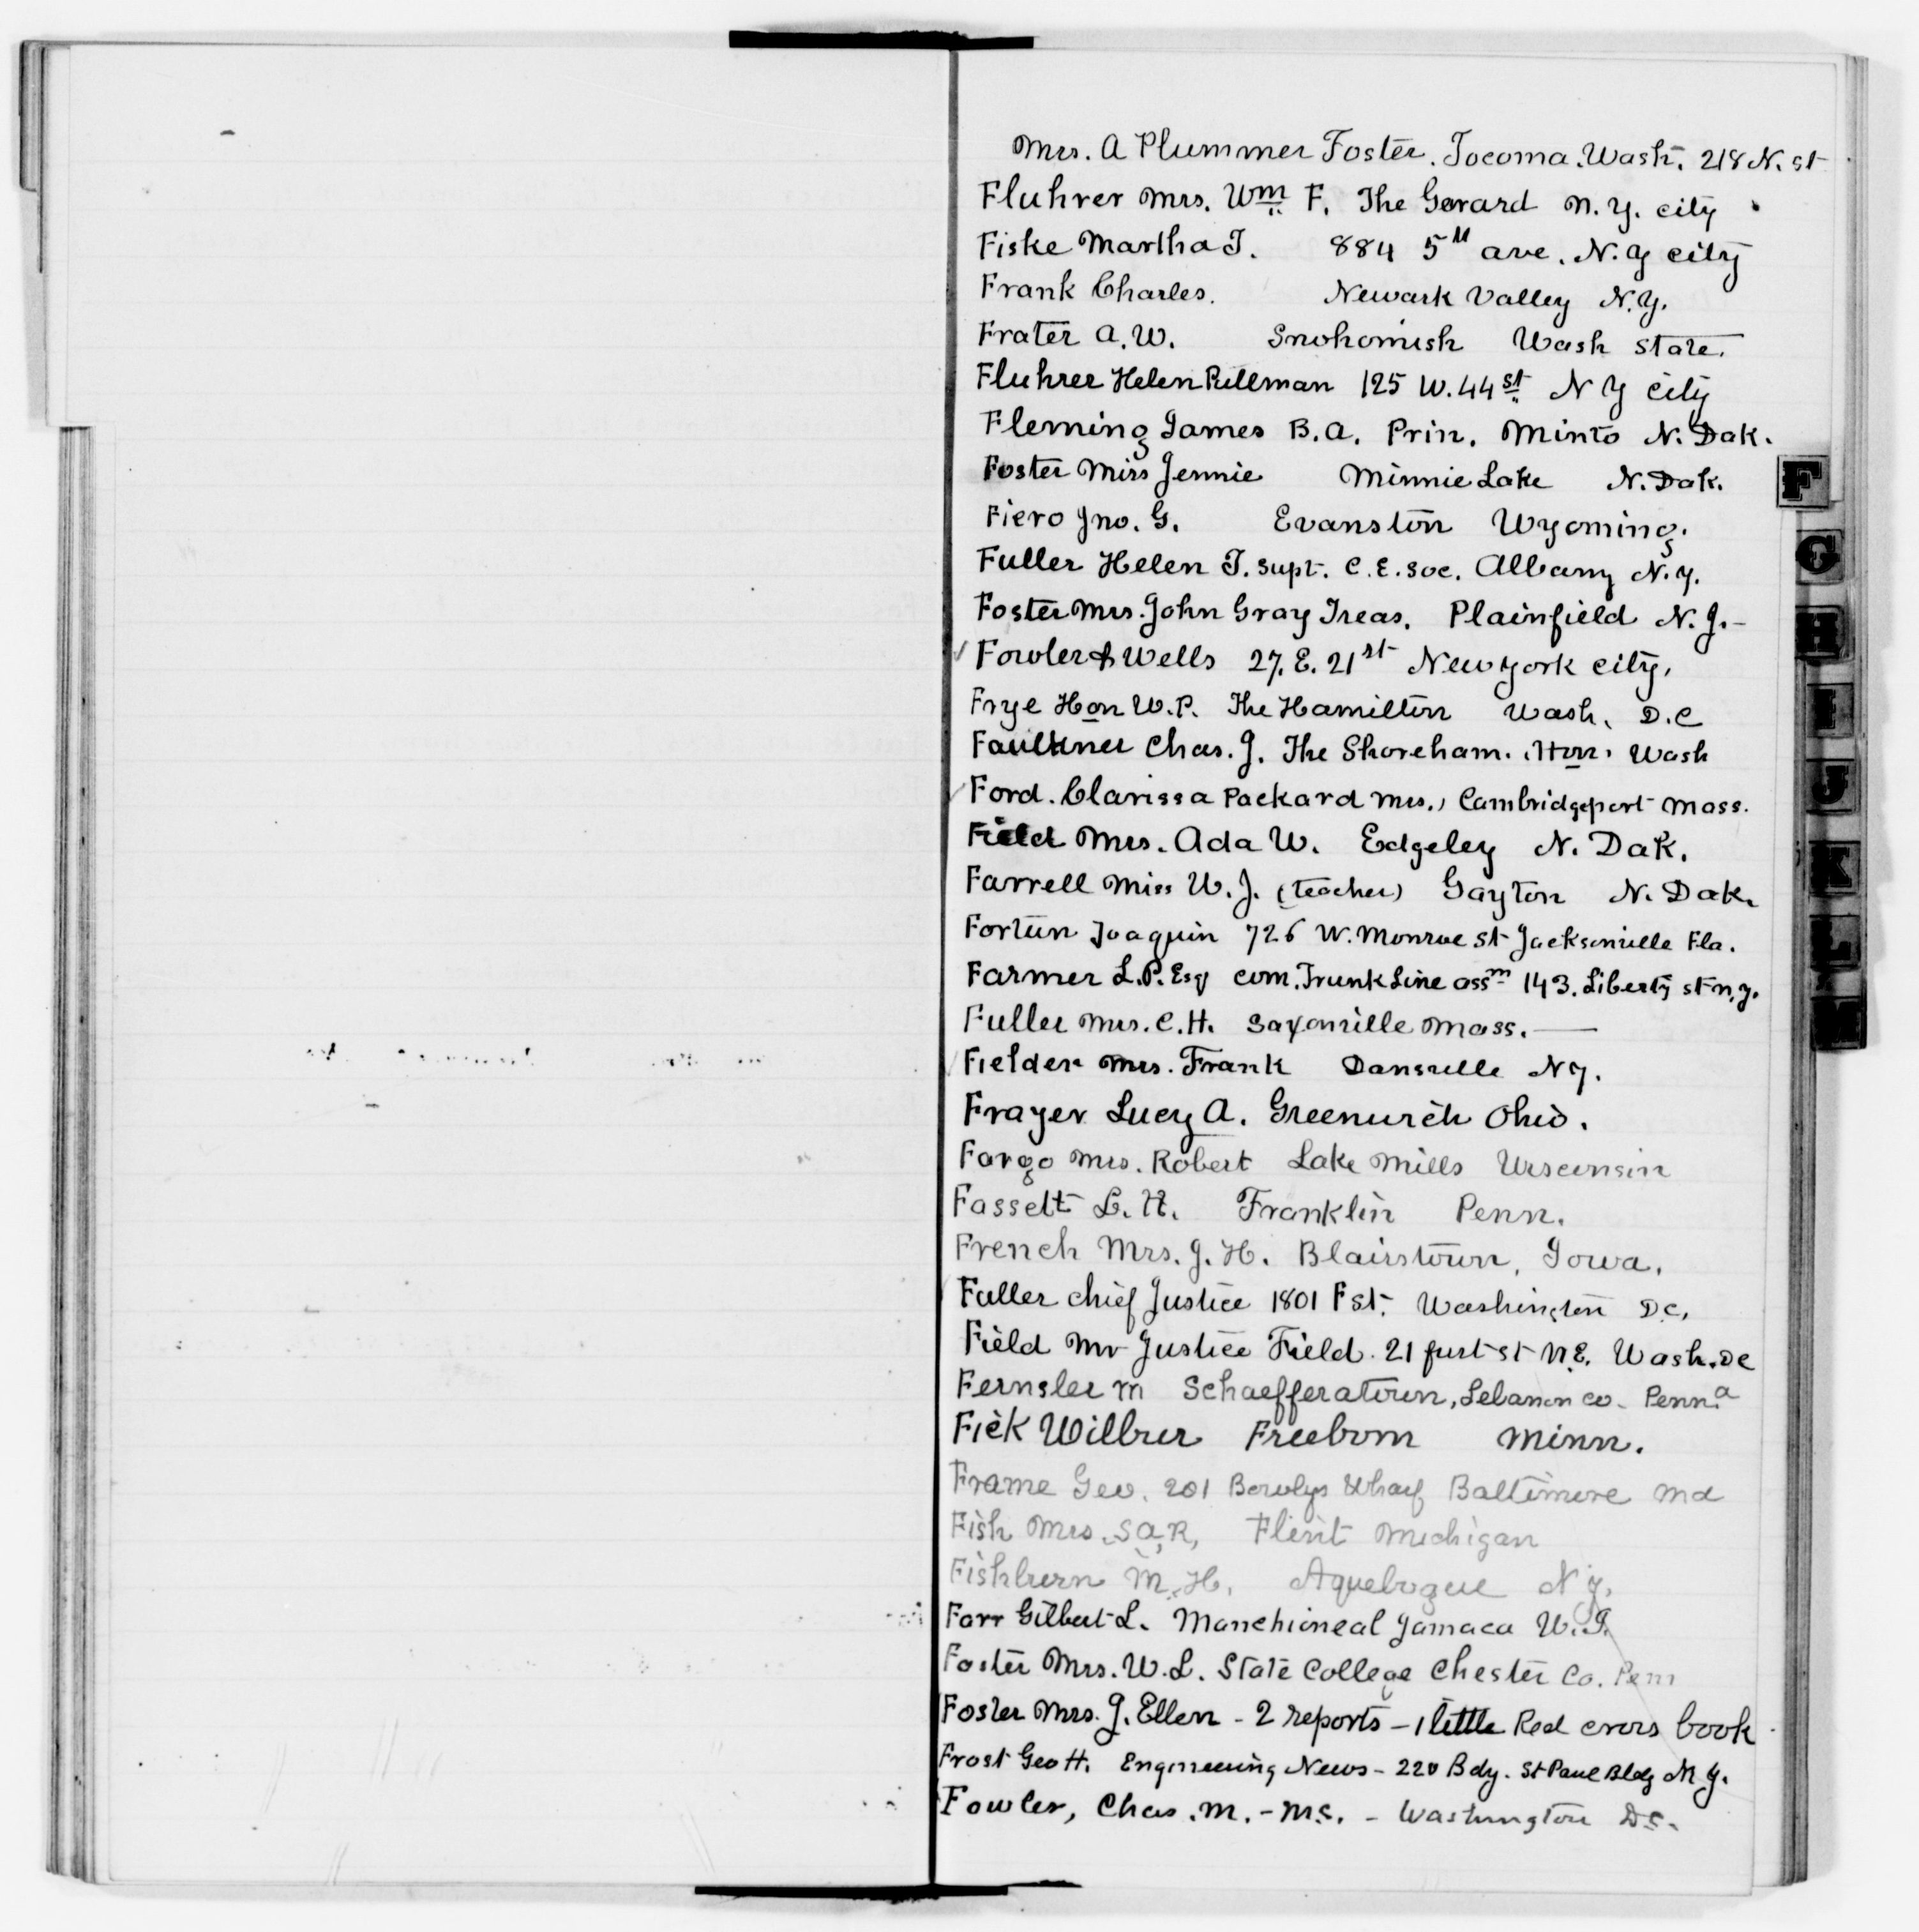 Mrs. A Plummer Foster. Tocoma. Wash. 218 N. st
Fluhrer Mrs. Wm F. The Gerard N.Y. city
Fiske Martha T. 884 5th ave. N.Y city
Frank Charles. Newark Valley N.Y.
Frater A.W. Snohomish Wash State.
Fluhrer Helen Pullman 125 W. 44 st N Y City
Fleming James B.A. Prin. Minto N. Dak.
Foster Miss Jennie Minnie Lake N. Dak.
Fiero Jno. G. Evanston Wyoming.
Fuller Helen T. Supt. C.E. Soc. Albany N.Y.
Foster Mrs. John Gray Treas. Plainfield N.J. -
Fowler & Wells 27. E. 21st New York City.
Frye Hon W.P. The Hamilton Wash. D.C
Faulkner Chas. J. The Shoreham. Hon. Wash
Ford. Clarissa Packard Mrs., Cambridgeport Mass.
Field Mrs. Ada W. Edgeley N. Dak.
Farrell Miss W.J. (teacher) Gayton N. Dak.
Fortun Joaquin 726 W. Monroe St Jacksonville Fla.
Farmer L.P. Esq com. Trunk Line assn 143. Liberty st N.Y.
Fuller Mrs. C.H. Saxonville Mass. —
Fielder Mrs. Frank Dansville N Y.
Frayer Lucy A. Greenwich Ohio.
Fargo Mrs. Robert Lake Mills Wisconsin
Fassett L. H. Franklin Penn.
French Mrs. J. H. Blairstown, Iowa.
Fuller Chief Justice 1801 F St. Washington D.C.
Field Mr Justice Field. 21 first st N.E. Wash. DC
Fernsler M Schaefferatown, Lebanon co. Penna
Fick Wilbur Freeborn Minn.
Frame Geo. 201 Bowlys Wharf Baltimore Md
Fish Mrs. S.A.R, Flint Michigan
Fishburn M. H. Aquebogue N.Y.
Farr Gilbert L. Manchioneal Jamaca W.I.
Foster Mrs. W.L. State College Chester Co. Penn
Foster Mrs. J. Ellen - 2 reports - 1 little Red cross book
Frost Geo H. Engineering News - 220 Bdy. St Paul Bldg N Y.
Fowler, Chas. M. - M.C. - Washington D.C.
F
G
H
I
J
K
L
M